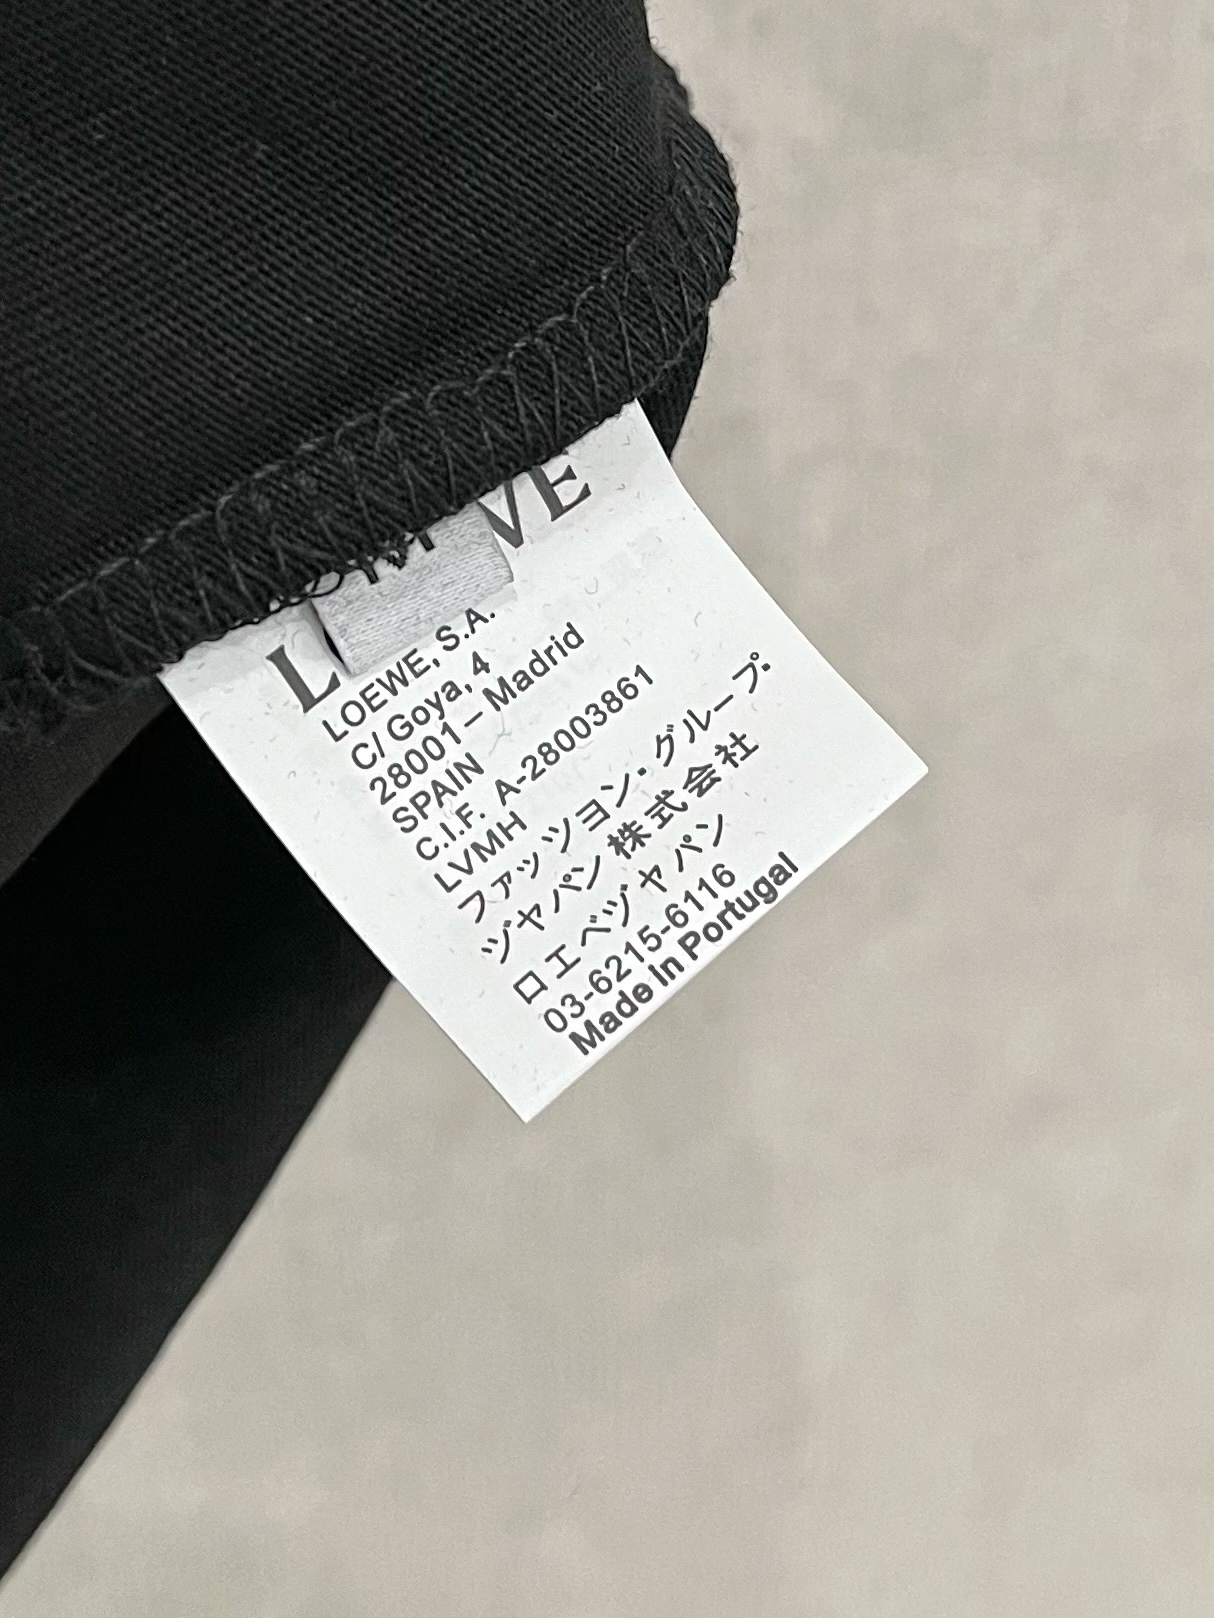 L VE
LOEWE, S.A.
C/ Goya, 4
28001 – Madrid
SPAIN
C.I.F. A-28003861
LVMH
ファッツヨン・グループ・
ヅヤパン株式会社
ロエベヅャパン
03-6215-6116
Made in Portugal